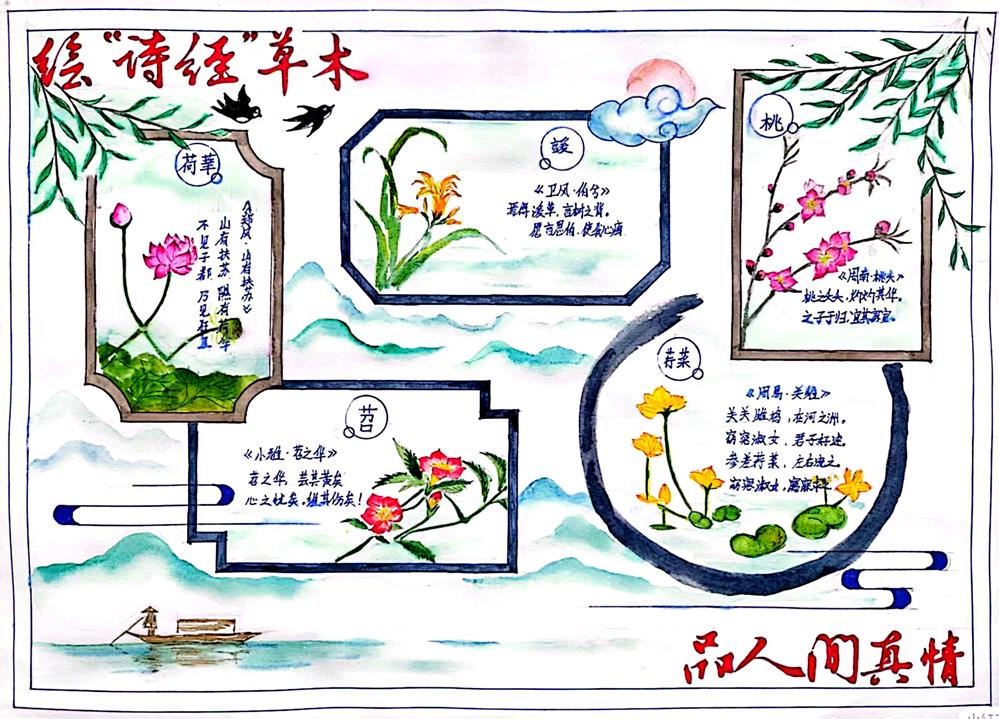 绘“诗经”草木
荷華
《郑风·山有扶苏》
山有扶苏 隰有荷华
不见子都 乃见狂且
諼
《卫风·伯兮》
焉得谖草,言树之背。
愿言思伯,使我心痗
桃
《周南·桃夭》
桃之夭夭,灼灼其华。
之子于归,宜其室家。
苕
《小雅·苕之华》
苕之华,芸其黄矣
心之忧矣,维其伤矣!
荇菜
《周易·关雎》
关关雎鸠,在河之洲。
窈窕淑女,君子好逑。
参差荇菜,左右流之。
窈窕淑女,寤寐求之
品人间真情